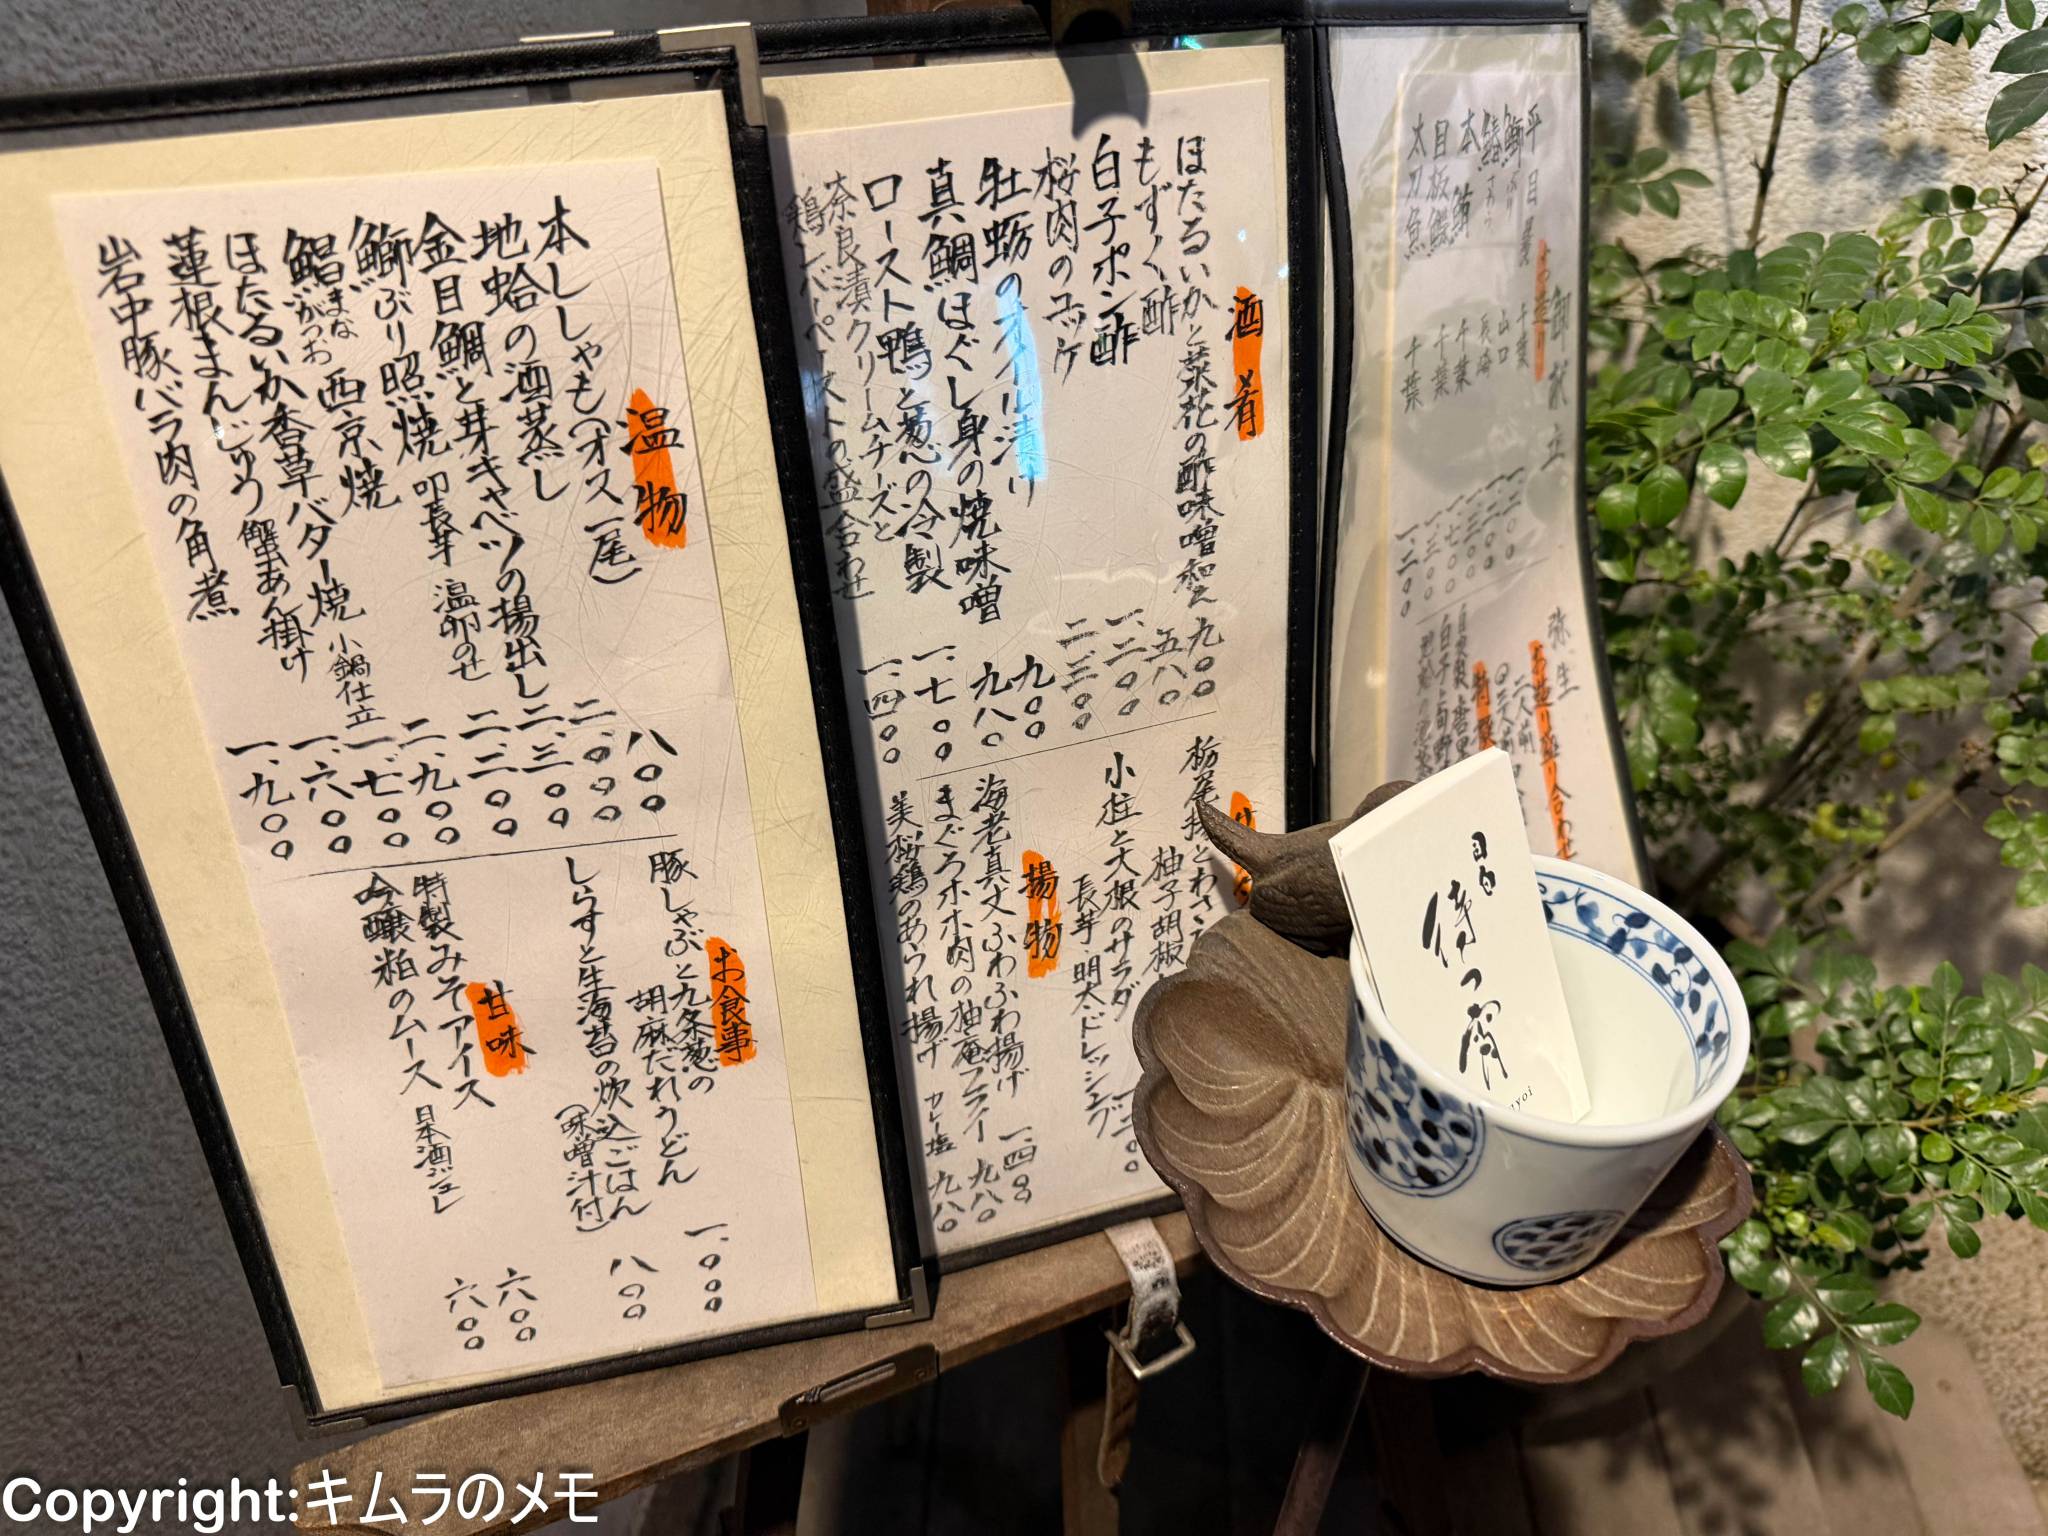 御献立
弥生
お造り
平目昆 千葉 一、二〇〇
鰤ぶり
本鮪
目板鰈
太刀魚 千葉 一、二〇〇
お造り盛り合わせ
二人前
酒肴
ほたるいかと菜花の酢味噌和え 九〇〇
もずく酢 五八〇
白子ポン酢 一、二〇〇
桜肉のユッケ 二、三〇〇
牡蛎のオイル漬け 九〇〇
真鯛ほぐし身の焼味噌 九八〇
ロースト鴨と葱の冷製 一、七〇〇
奈良漬クリームチーズと
鶏レバーペーストの盛合わせ 一、四〇〇
栃尾揚とわさ
柚子胡椒
小柱と大根のサラダ
長芋・明太ドレッシング
揚物
海老真丈ふわふわ揚げ 一、四〇〇
まぐろホホ肉の柚庵フライ 九八〇
美桜鶏のあられ揚げ カレー塩 九八〇
温物
本ししゃも(オス一尾) 八〇〇
地蛤の酒蒸し 二、〇〇〇
金目鯛と芽キャベツの揚出し 二、三〇〇
鰤ぶり照焼 叩長芋 温卵のせ 二、二〇〇
鯧まながつお西京焼 二、九〇〇
ほたるいか香草バター焼 小鍋仕立 一、七〇〇
蓮根まんじゅう 蟹あん掛け 一、六〇〇
岩中豚バラ肉の角煮 一、九〇〇
お食事
豚しゃぶと九条葱の
胡麻だれうどん 一、〇〇〇
しらすと生海苔の炊込ごはん
(味噌汁付) 八〇〇
甘味
特製みそアイス 六〇〇
吟醸粕のムース 日本酒ジュレ 六〇〇
目白
待つ宵
Copyright:キムラのメモ